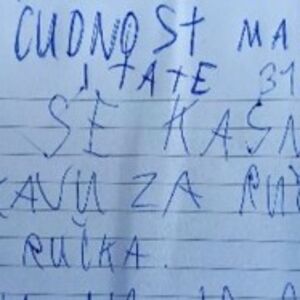 ČUDNOST MA
I TATE 31
SE KASN
KAVU ZA RUČ
RUČKA.